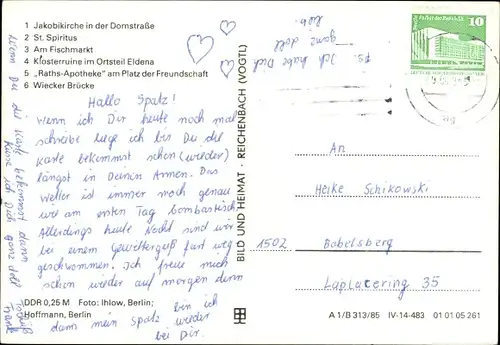 1 Jakobikirche in der Domstraße
2 St. Spiritus
3 Am Fischmarkt
4 Klosterruine im Ortsteil Eldena
5 „Raths-Apotheke" am Platz der Freundschaft
6 Wiecker Brücke
Hallo Spatz!
Wenn ich Dir heute noch mal
schreibe liege ich bis Du die
Karte bekommst schon (wieder)
längst in Deinen Armen. Das
Wetter ist immer noch genau
wie am ersten Tag bombastisch
Allerdings heute Nacht sind wir
bei einem Gewitterguß fast weg
geschwommen. Ich freue mich
schon wieder auf morgen denn
dann bin ich
mein Spatz wieder
bei Dir.
Wenn Du die Karte bekommst dann
küsse ich Dich ganz doll
Tschüß
Frank
PS. Ich habe Dich
ganz doll
lieb.
DDR 0,25 M Foto: Ihlow, Berlin;
Hoffmann, Berlin
BILD UND HEIMAT · REICHENBACH (VOGTL)
10
An
Heike Schikowski
1502 Babelsberg
Laplacering 35
A 1/B 313/85 IV-14-483 01 01 05 261